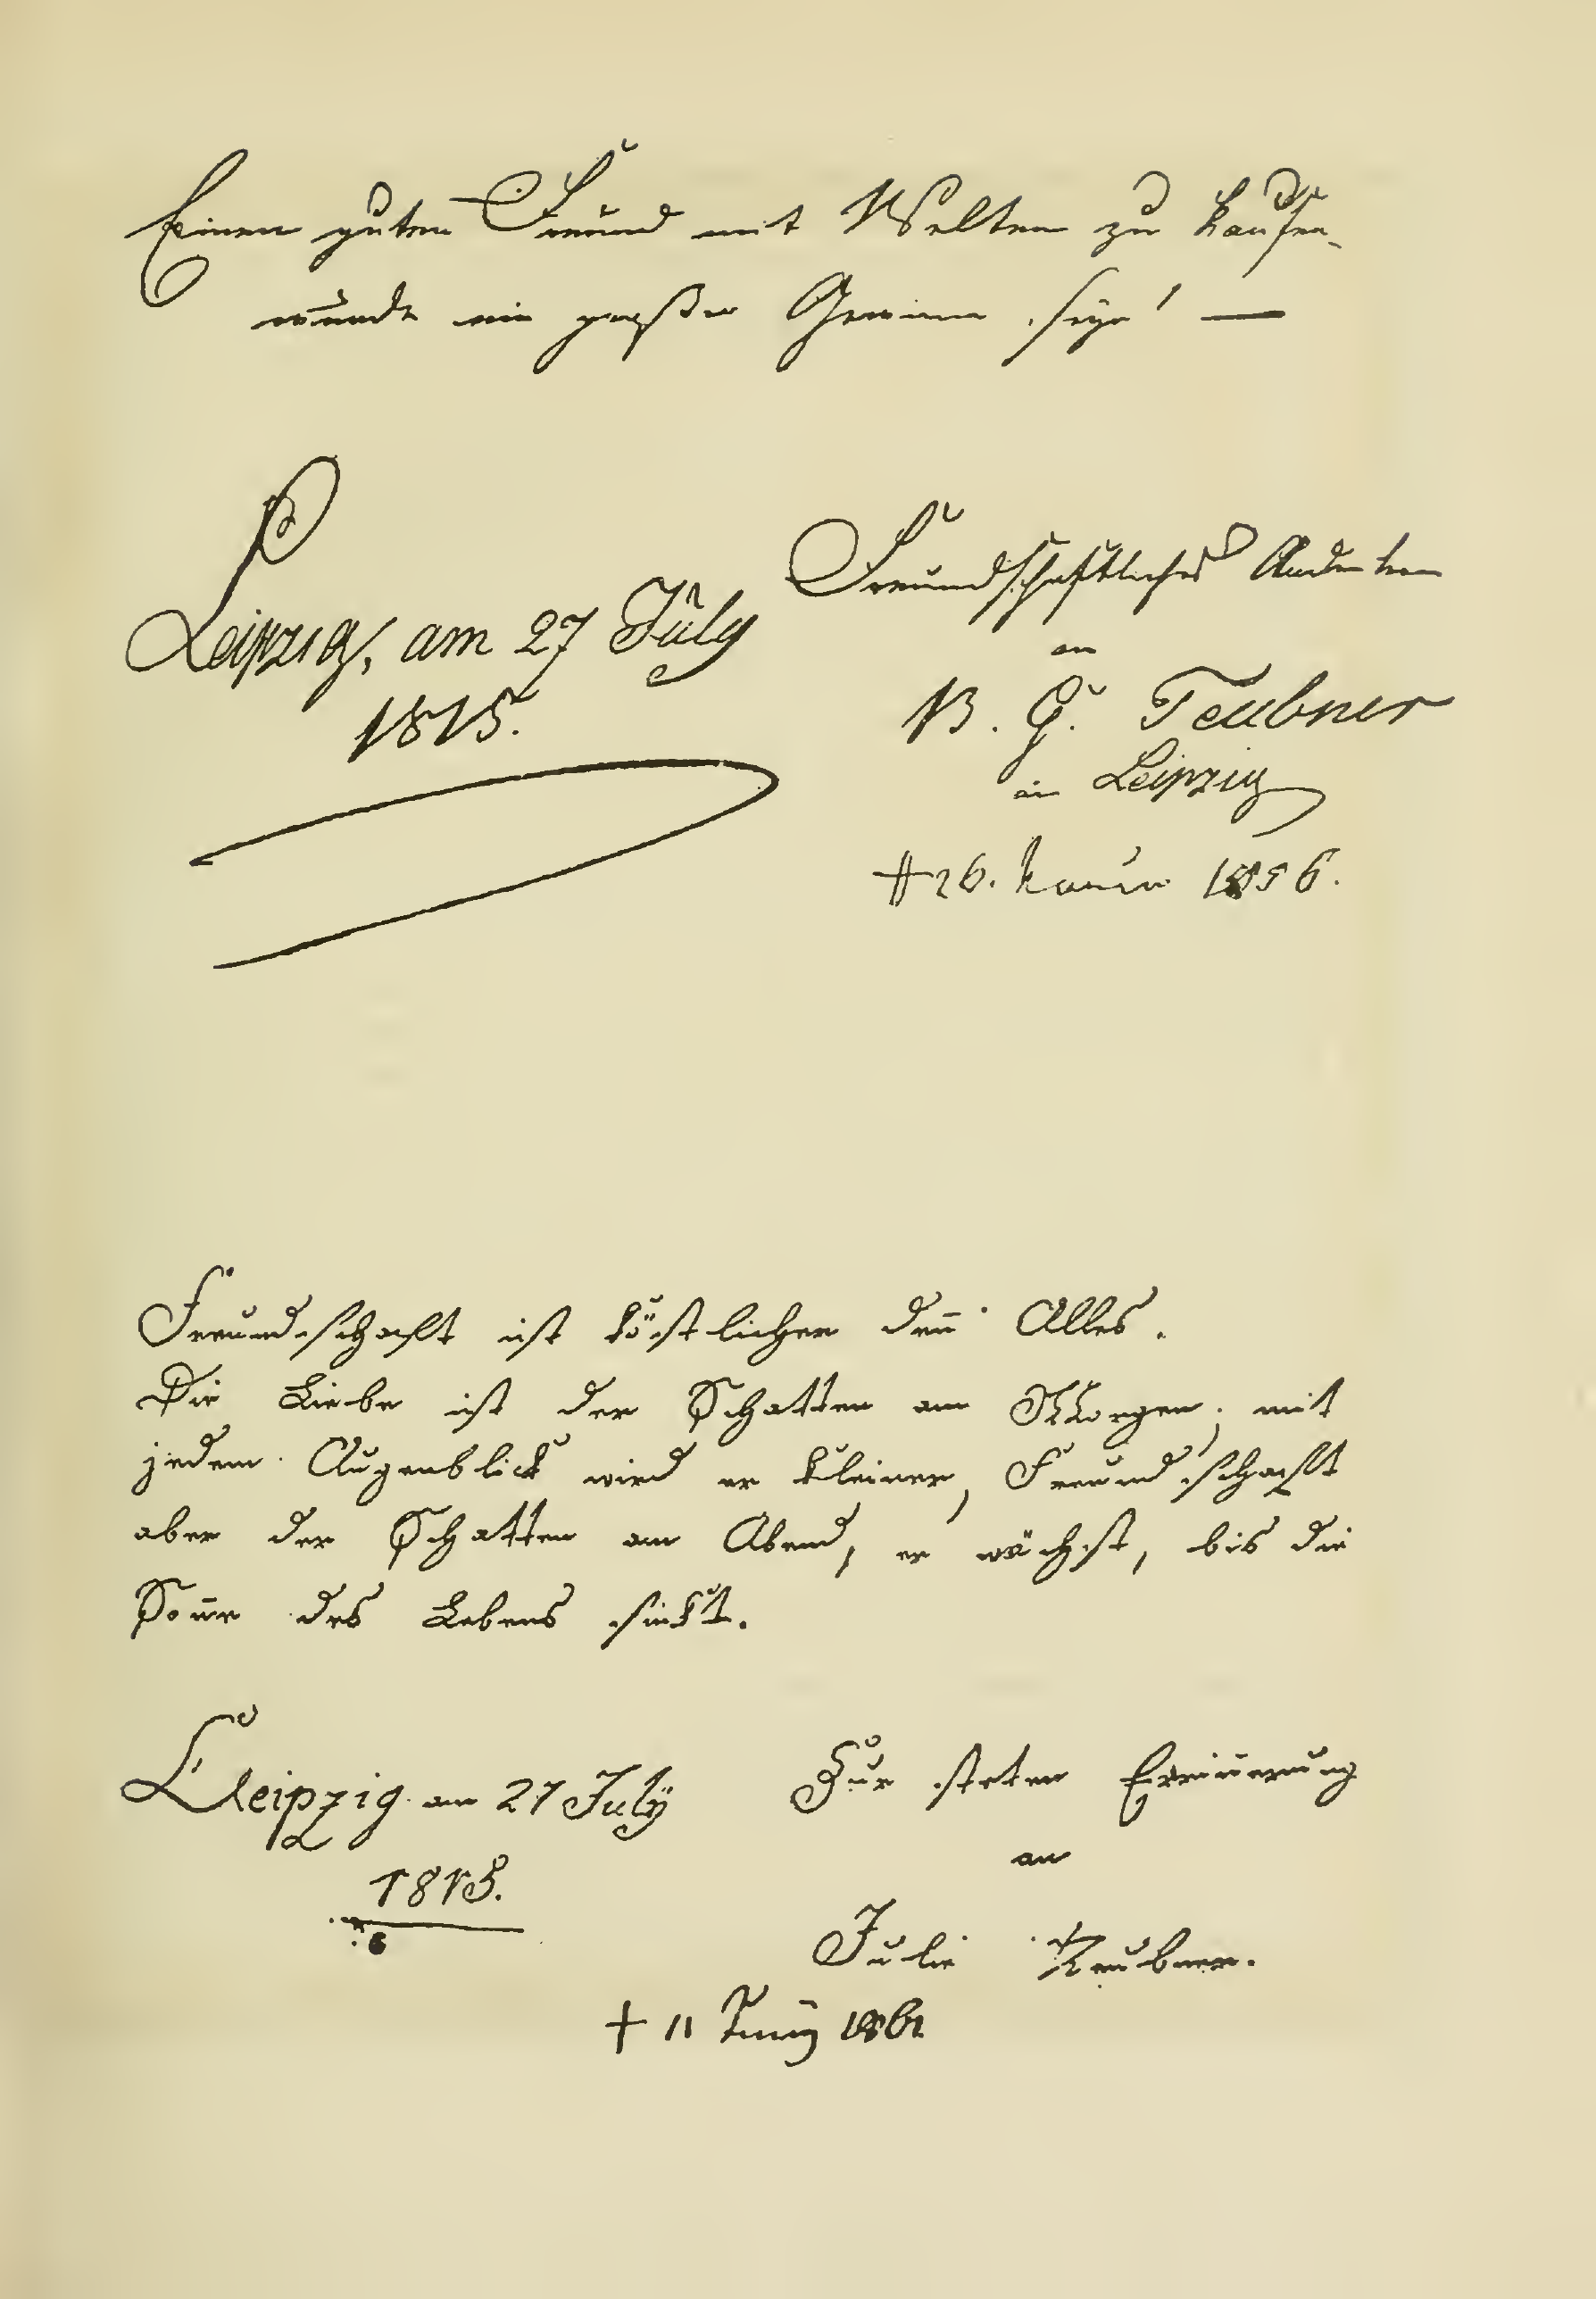 Einen guten Freund mit Welten zu kaufen
würde ein großer Gewinn seyn! —
Leipzig, am 27 July
1815.
Freundschaftliches Andenken
an
B. G. Teubner
in Leipzig
26. 1856.
Freundschaft ist köstlicher den̅ Alles.
Die Liebe ist der Schatten am Morgen; mit
jedem Augenblick wird er kleiner, Freundschaft
aber der Schatten am Abend, er wächst, bis die
Son̅e des Lebens sinkt.
Leipzig am 27 July
1815.
Zur steten Erin̅erung
an
Julie Teubner.
† 11 Juny